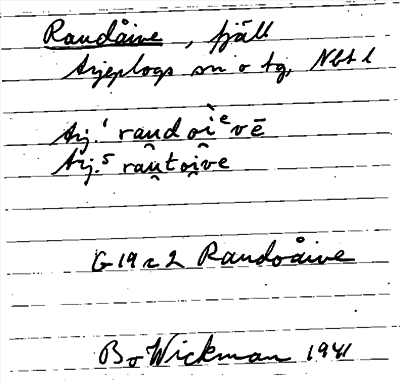 Raudåive, fjäll
Arjeplogs sn o tg, Nbt l
Arj.¹ rau̯doi̯ὲᵉvē
Arj.⁵ rau̯toi̯ve
G 19 c 2 Raudoåive
Bo Wickman 1941